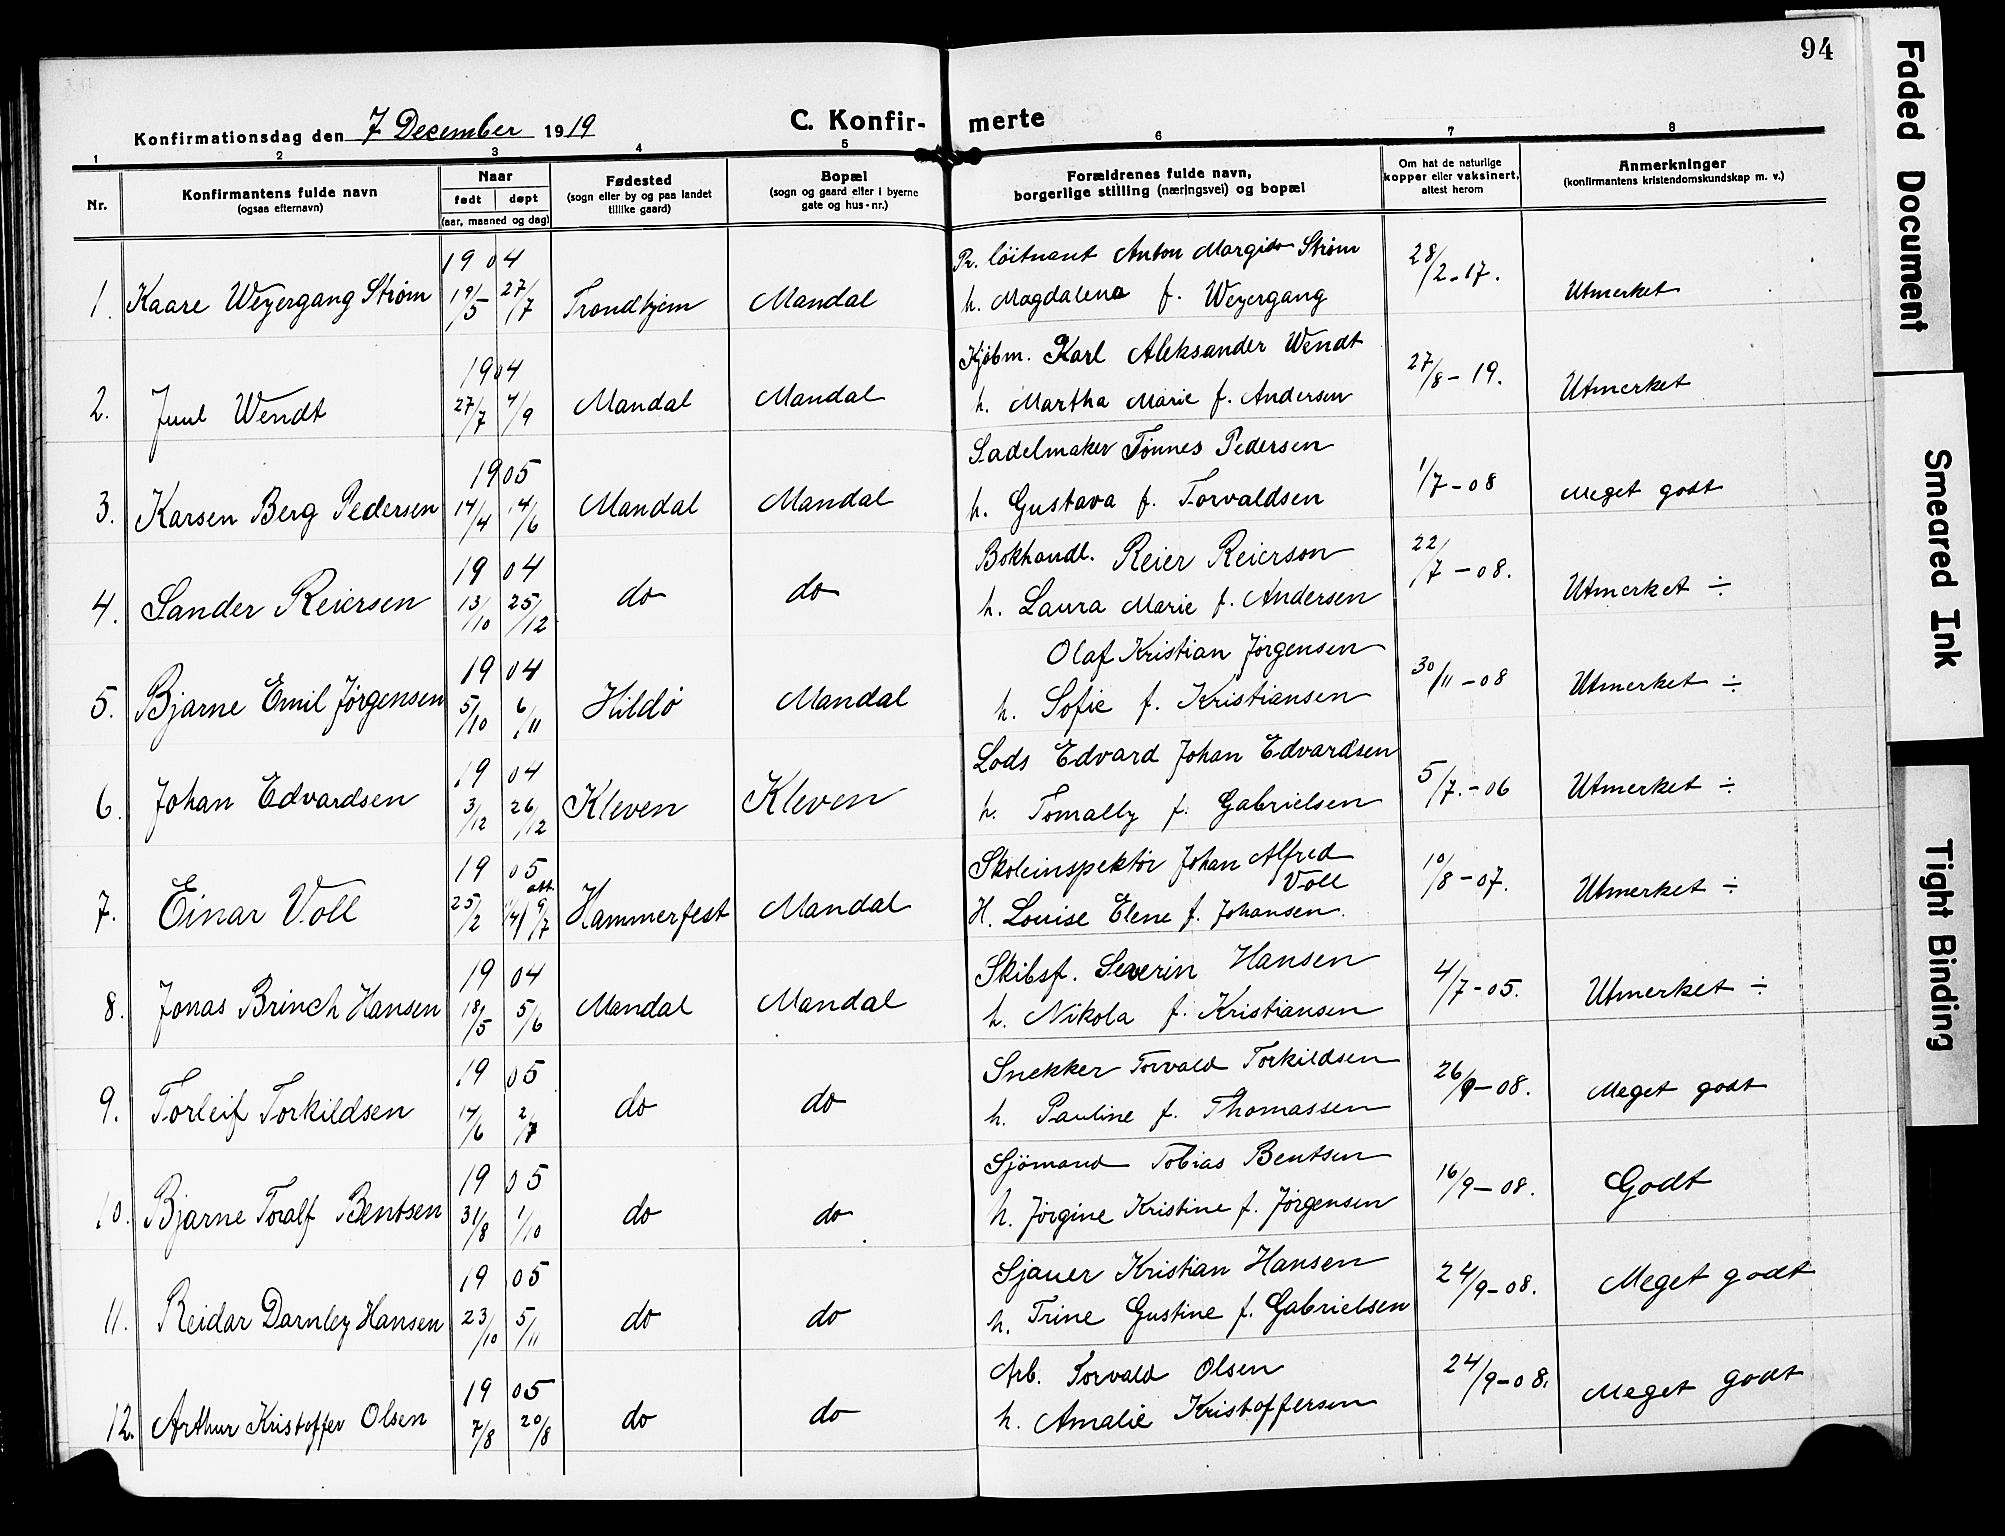 94
Konfirmationsdag den 7 December 1919
C. Konfir- merte
1 2 3 4 5 6 7 8
Nr.
Konfirmantens fulde navn
(ogsaa efternavn)
Naar
født døpt
(aar, maaned og dag)
Fødested
(sogn eller by og paa landet
tillike gaard)
Bopæl
(sogn og gaard eller i byerne
gate og hus-nr.)
Forældrenes fulde navn,
borgerlige stilling (næringsvei) og bopæl
Om hat de naturlige
kopper eller vaksinert,
attest herom
Anmerkninger
(konfirmantens kristendomskundskap m. v.)
1904 Pr. löitnant Anton Margido Strøm
1. Kaare Weyergang Strøm 19/5 27/7 Trondhjem Mandal h. Magdalena f. Weyergang 28/2-17. Utmerket
1904 Kjøbm. Karl Aleksander Wendt
2. Juul Wendt 27/7 4/9 Mandal Mandal h. Martha Marie f. Andersen 27/8-19. Utmerket
1905 Sadelmaker Tønnes Pedersen
3. Karsen Berg Pedersen 14/4 14/6 Mandal Mandal h. Gustava f. Torvaldsen 1/7-08 Meget godt
1904 Bokhandl. Reier Reierson
4. Sander Reiersen 13/10 25/12 do do h. Laura Marie f. Andersen 22/7-08. Utmerket ÷
1904 Olaf Kristian Jørgensen
5. Bjarne Emil Jørgensen 5/10 6/11 Hildö Mandal h. Sofie f. Kristiansen 30/11-08 Utmerket ÷
1904 Lods Edvard Johan Edvardsen
6. Johan Edvardsen 3/12 26/12 Kleven Kleven h. Tomally f. Gabrielsen 5/7.-06 Utmerket ÷
1905 Skoleinspektör Johan Alfred
Voll
7. Einar Voll 25/2 9/7 Hammerfest Mandal H. Louise Elene f. Johansen. 10/8-07. Utmerket ÷
1904 Skibsf. Severin Hansen
8. Jonas Brinch Hansen 18/5 5/6 Mandal Mandal h. Nikola f. Kristiansen 4/7-05. Utmerket ÷
1905 Snekker Torvald Torkildsen
9. Torleif Torkildsen 14/6 2/7 do do h. Pauline f. Thomassen 26/9-08. Meget godt
1905 Sjömand Tobias Bentsen
10. Bjarne Toralf Bentsen 31/8 1/10 do do h. Jörgine Kristine f. Jørgensen 16/9-08. Godt
1905 Sjauer Kristian Hansen
11. Reidar Darnley Hansen 23/10 5/11 do do h. Trine Gustine f. Gabrielsen 24/9-08. Meget godt
1905 Arb. Torvald Olsen
12. Arthur Kristoffer Olsen 7/8 20/8 do do h. Amalie Kristoffersen 24/9-08. Meget godt
Faded Document
Smeared Ink
Tight Binding